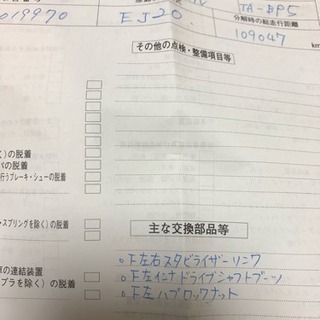 019970
EJ20
TA-BP5
分解時の総走行距離
109047 km
その他の点検・整備項目等
く)の脱着
の脱着
行うブレーキ・シューの脱着
スプリングを除く)の脱着
主な交換部品等
○F左右スタビライザーリンク
の連結装置
○F左インナドライブシャフトブーツ
プラを除く)の脱着
○F左ハブロックナット